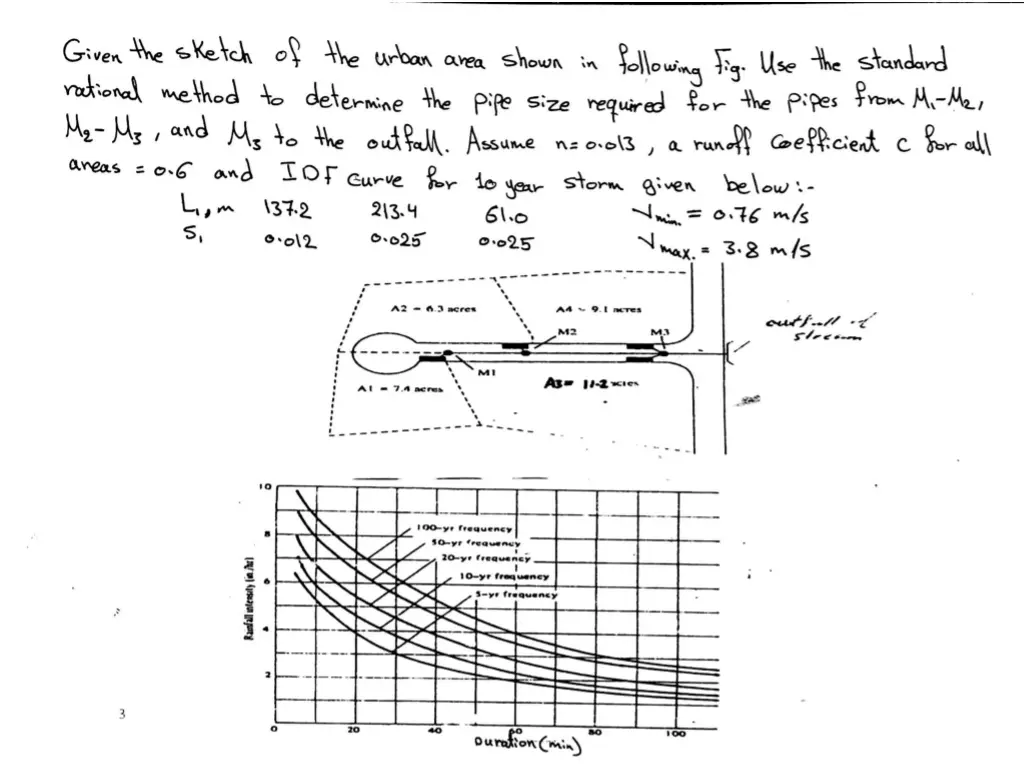 Given the sketch of the urban area shown in following Fig. Use the standard
rational method to determine the pipe size required for the pipes from M1-M2,
M2-M3, and M3 to the outfall. Assume n=0.013, a runoff coefficient c for all
areas = 0.6 and IDF curve for 10 year storm given below:-
L, m 137.2 213.4 61.0 Vmin. = 0.76 m/s
S, 0.012 0.025 0.025 Vmax. = 3.8 m/s
A2 = 6.3 acres A4 ~ 9.1 acres
outfall of
stream
M2 M3
M1
A1 = 7.4 acres A3= 11.2 acres
10
100-yr frequency
8 50-yr frequency
20-yr frequency
6 10-yr frequency
5-yr frequency
Rainfall intensity (in./hr)
4
2
3
0 20 40 60 80 100
Duration (min)